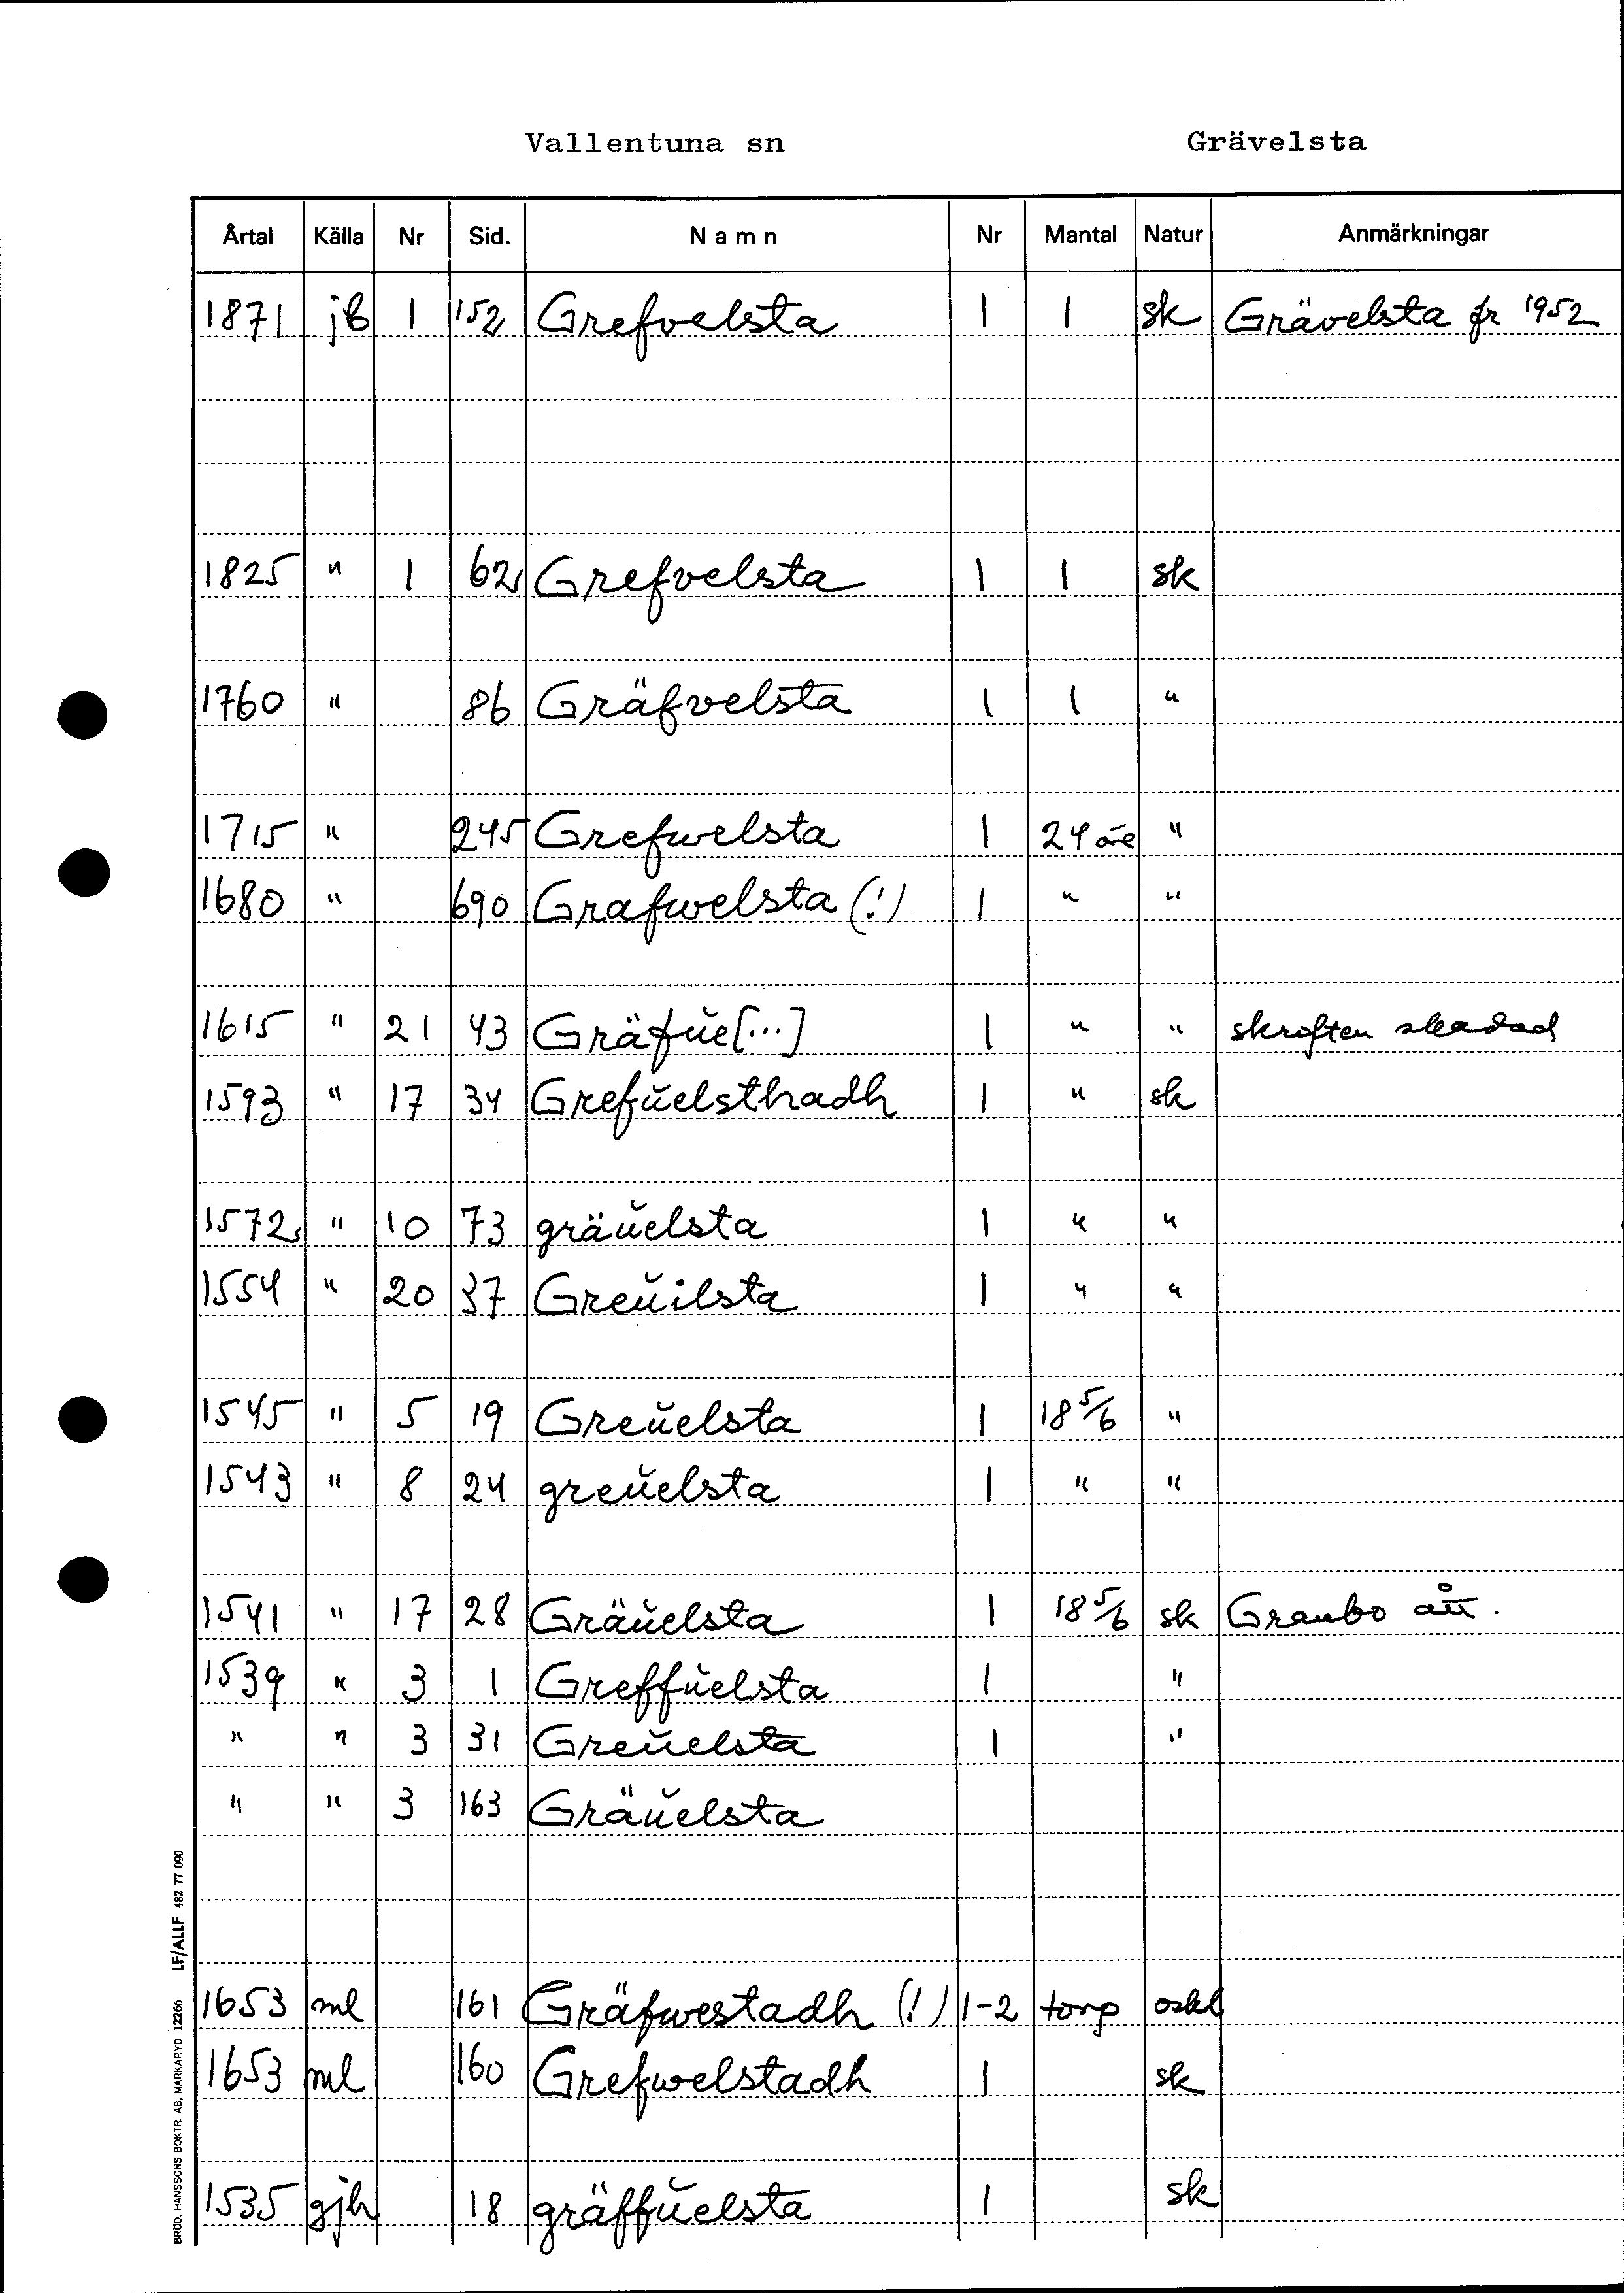 Vallentuna sn Grävelsta
Årtal Källa Nr Sid. Namn Nr Mantal Natur Anmärkningar
1871 jb 1 152 Grefvelsta 1 1 sk Grävelsta fr 1952
1825 " 1 62 Grefvelsta 1 1 sk
1760 " 86 Gräfvelsta 1 1 "
1715 " 245 Grefwelsta 1 24 öre "
1680 " 690 Grafwelsta (!) 1 " "
1615 " 21 43 Gräfŭe[...] 1 " " skriften skadad
1593 " 17 34 Grefŭelsthadh 1 " sk
1572 " 10 73 gräŭelsta 1 " "
1554 " 20 37 Greŭilsta 1 " "
1545 " 5 19 Greŭelsta 1 18 5/6 "
1543 " 8 24 greŭelsta 1 " "
1541 " 17 28 Gräŭelsta 1 18 5/6 sk Graubo
1539 " 3 1 Greffŭelsta 1 "
" " 3 31 Greŭelsta 1 "
" " 3 163 Gräŭelsta
1653 ml 161 Gräfwestadh (!) 1-2 torp oskl
1653 ml 160 Grefwelstadh 1 sk
1535 gjh 18 gräffŭelsta 1 sk
BRÖD. HANSSONS BOKTR. AB, MARKARYD 12266 LF/ALLF 482 77 090